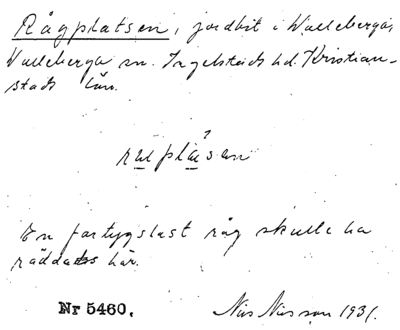 Rågplatsen, jordbit i Valleberga,
Valleberga sn. Ingelstads hd. Kristian-
stads län.
En fartygslast råg skulle ha
räddats här.
Nr 5460. Nils Nilsson 1931.